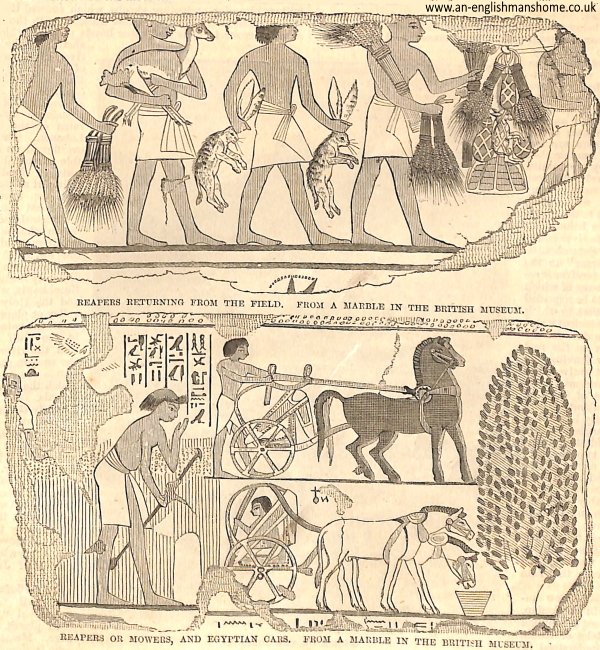 www.an-englishmanshome.co.uk
REAPERS RETURNING FROM THE FIELD. FROM A MARBLE IN THE BRITISH MUSEUM.
REAPERS OR MOWERS, AND EGYPTIAN CARS. FROM A MARBLE IN THE BRITISH MUSEUM.